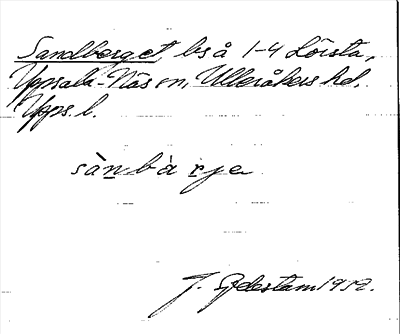 Sandberget, bs å 1-4 Lörsta,
Uppsala-Näs sn, Ulleråkers hd,
Upps. l.
sànbà rje
J. Edestam 1912.